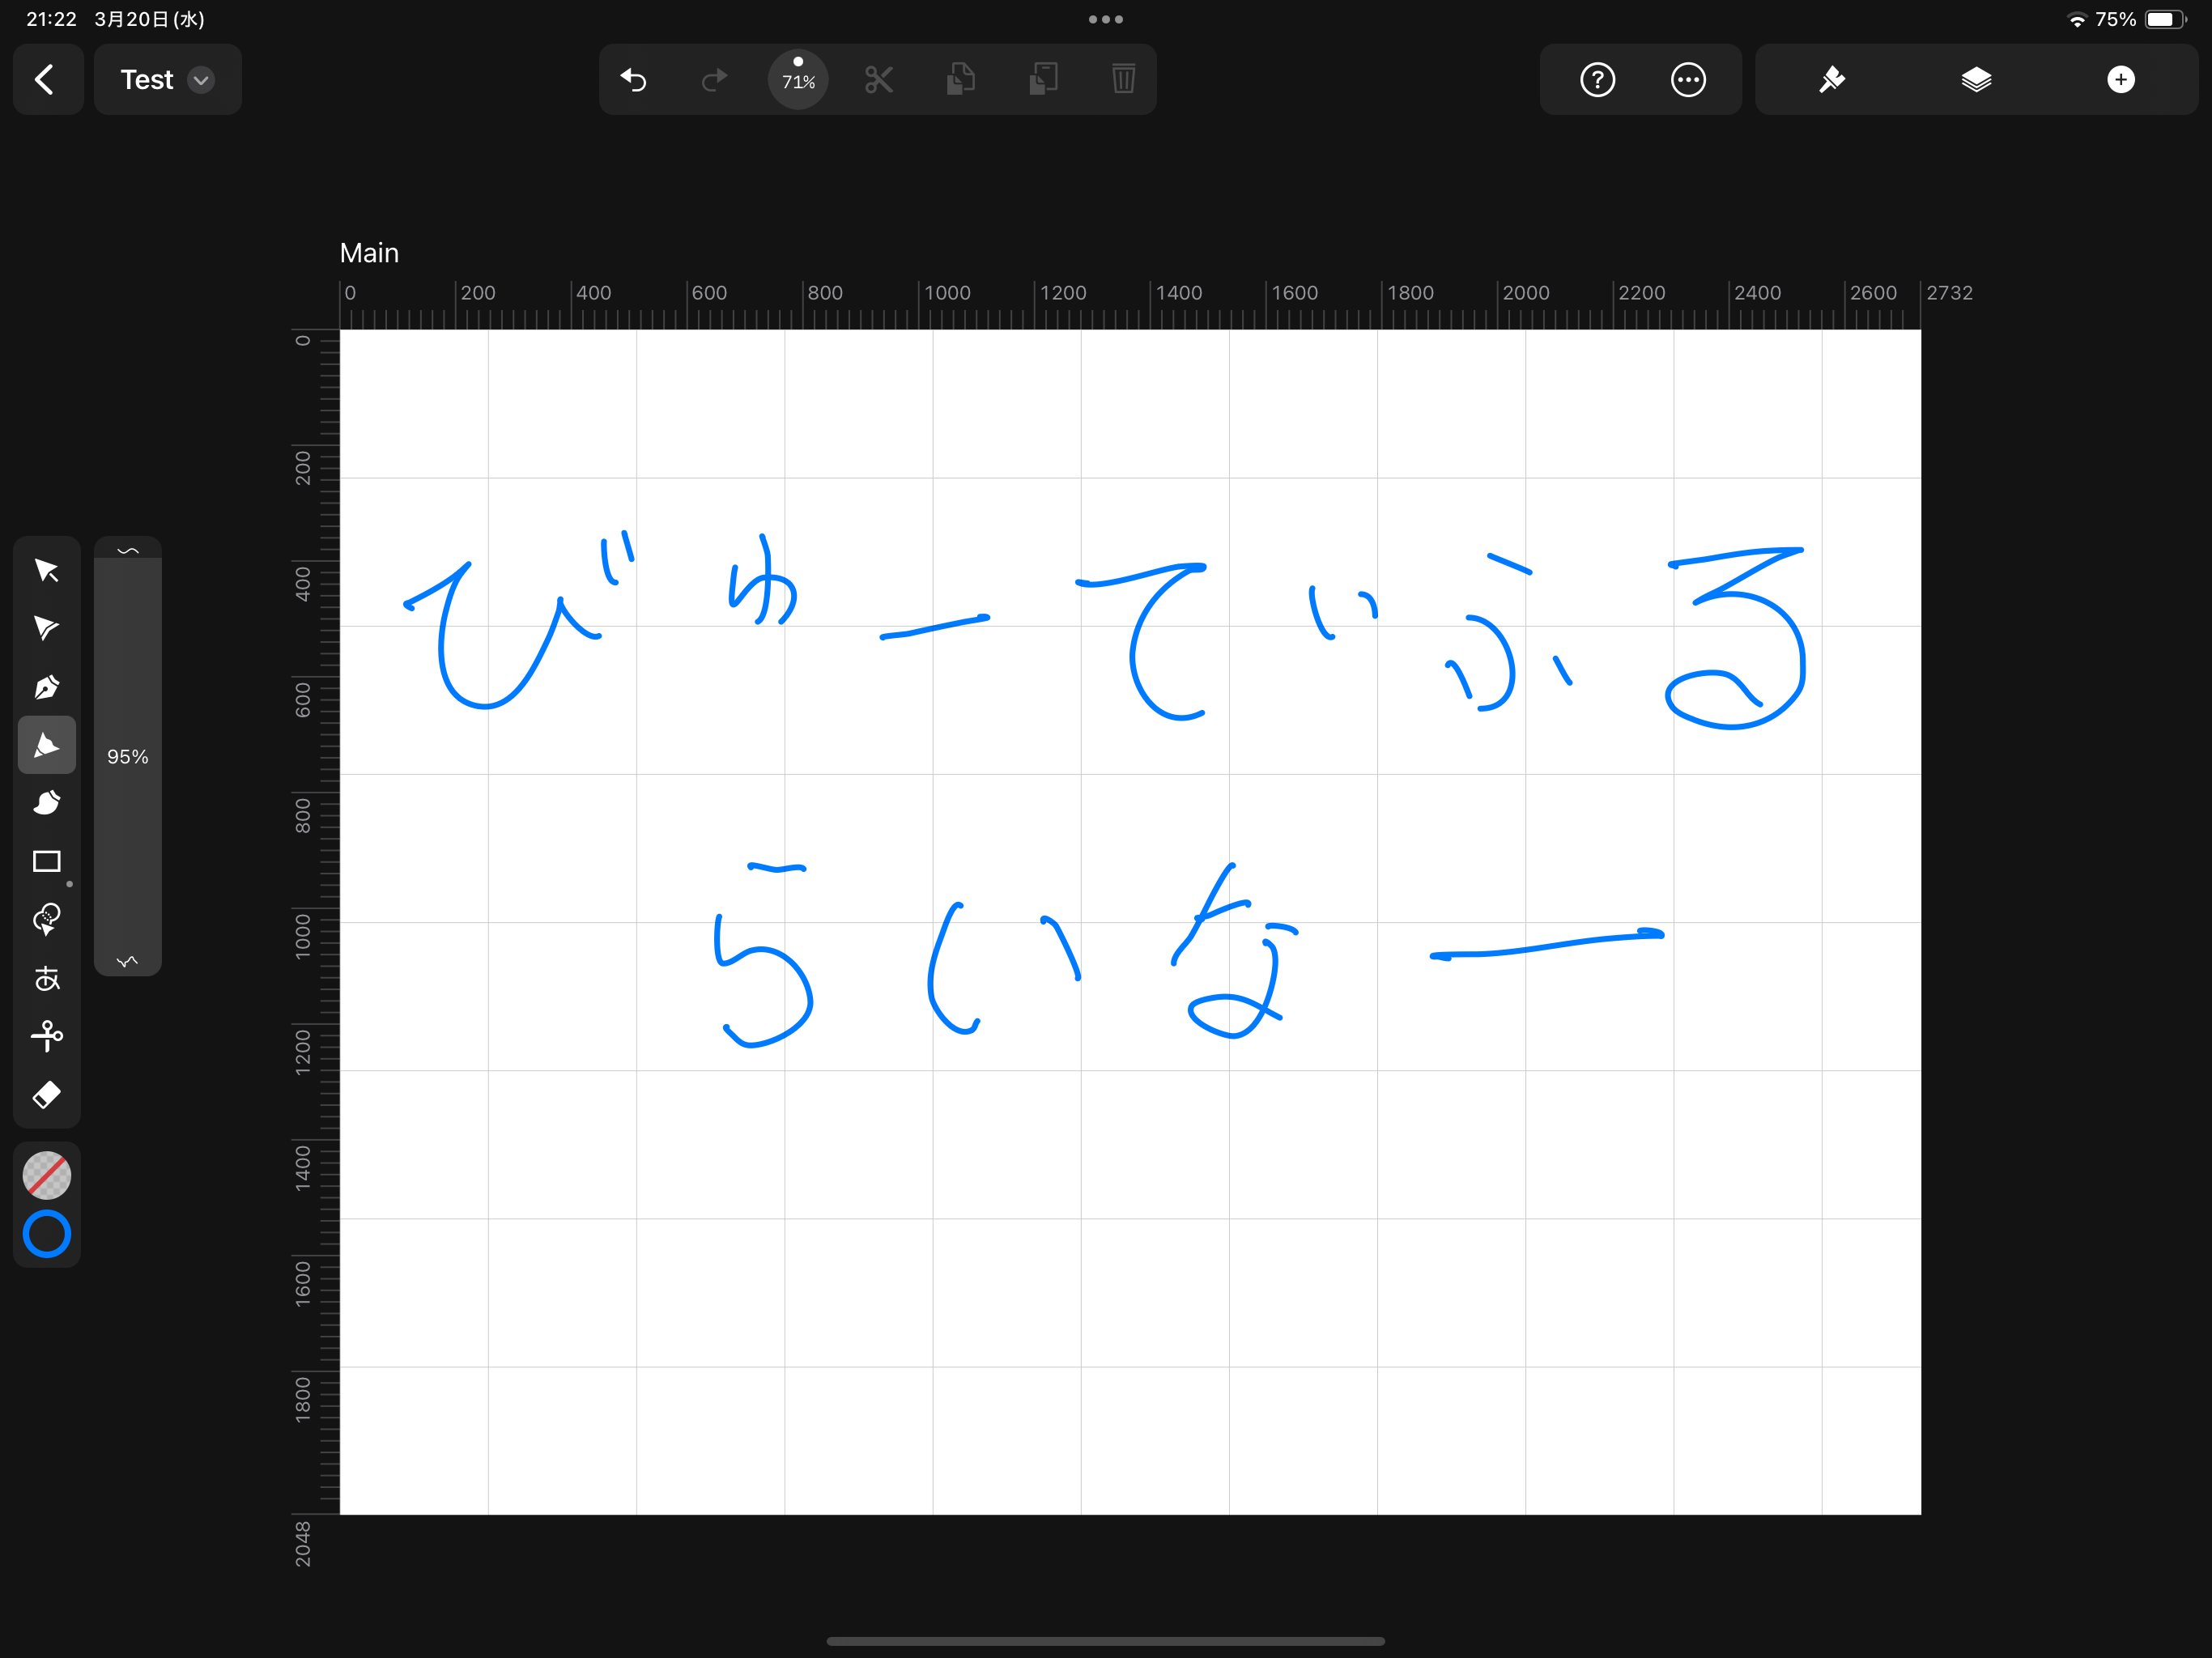 21:22 3月20日(水) 75%
Test 71%
Main
0 200 400 600 800 1000 1200 1400 1600 1800 2000 2200 2400 2600 2732
0
200
400
600
800
1000
1200
1400
1600
1800
2048
びゅーてぃふる
らいなー
95%
あ